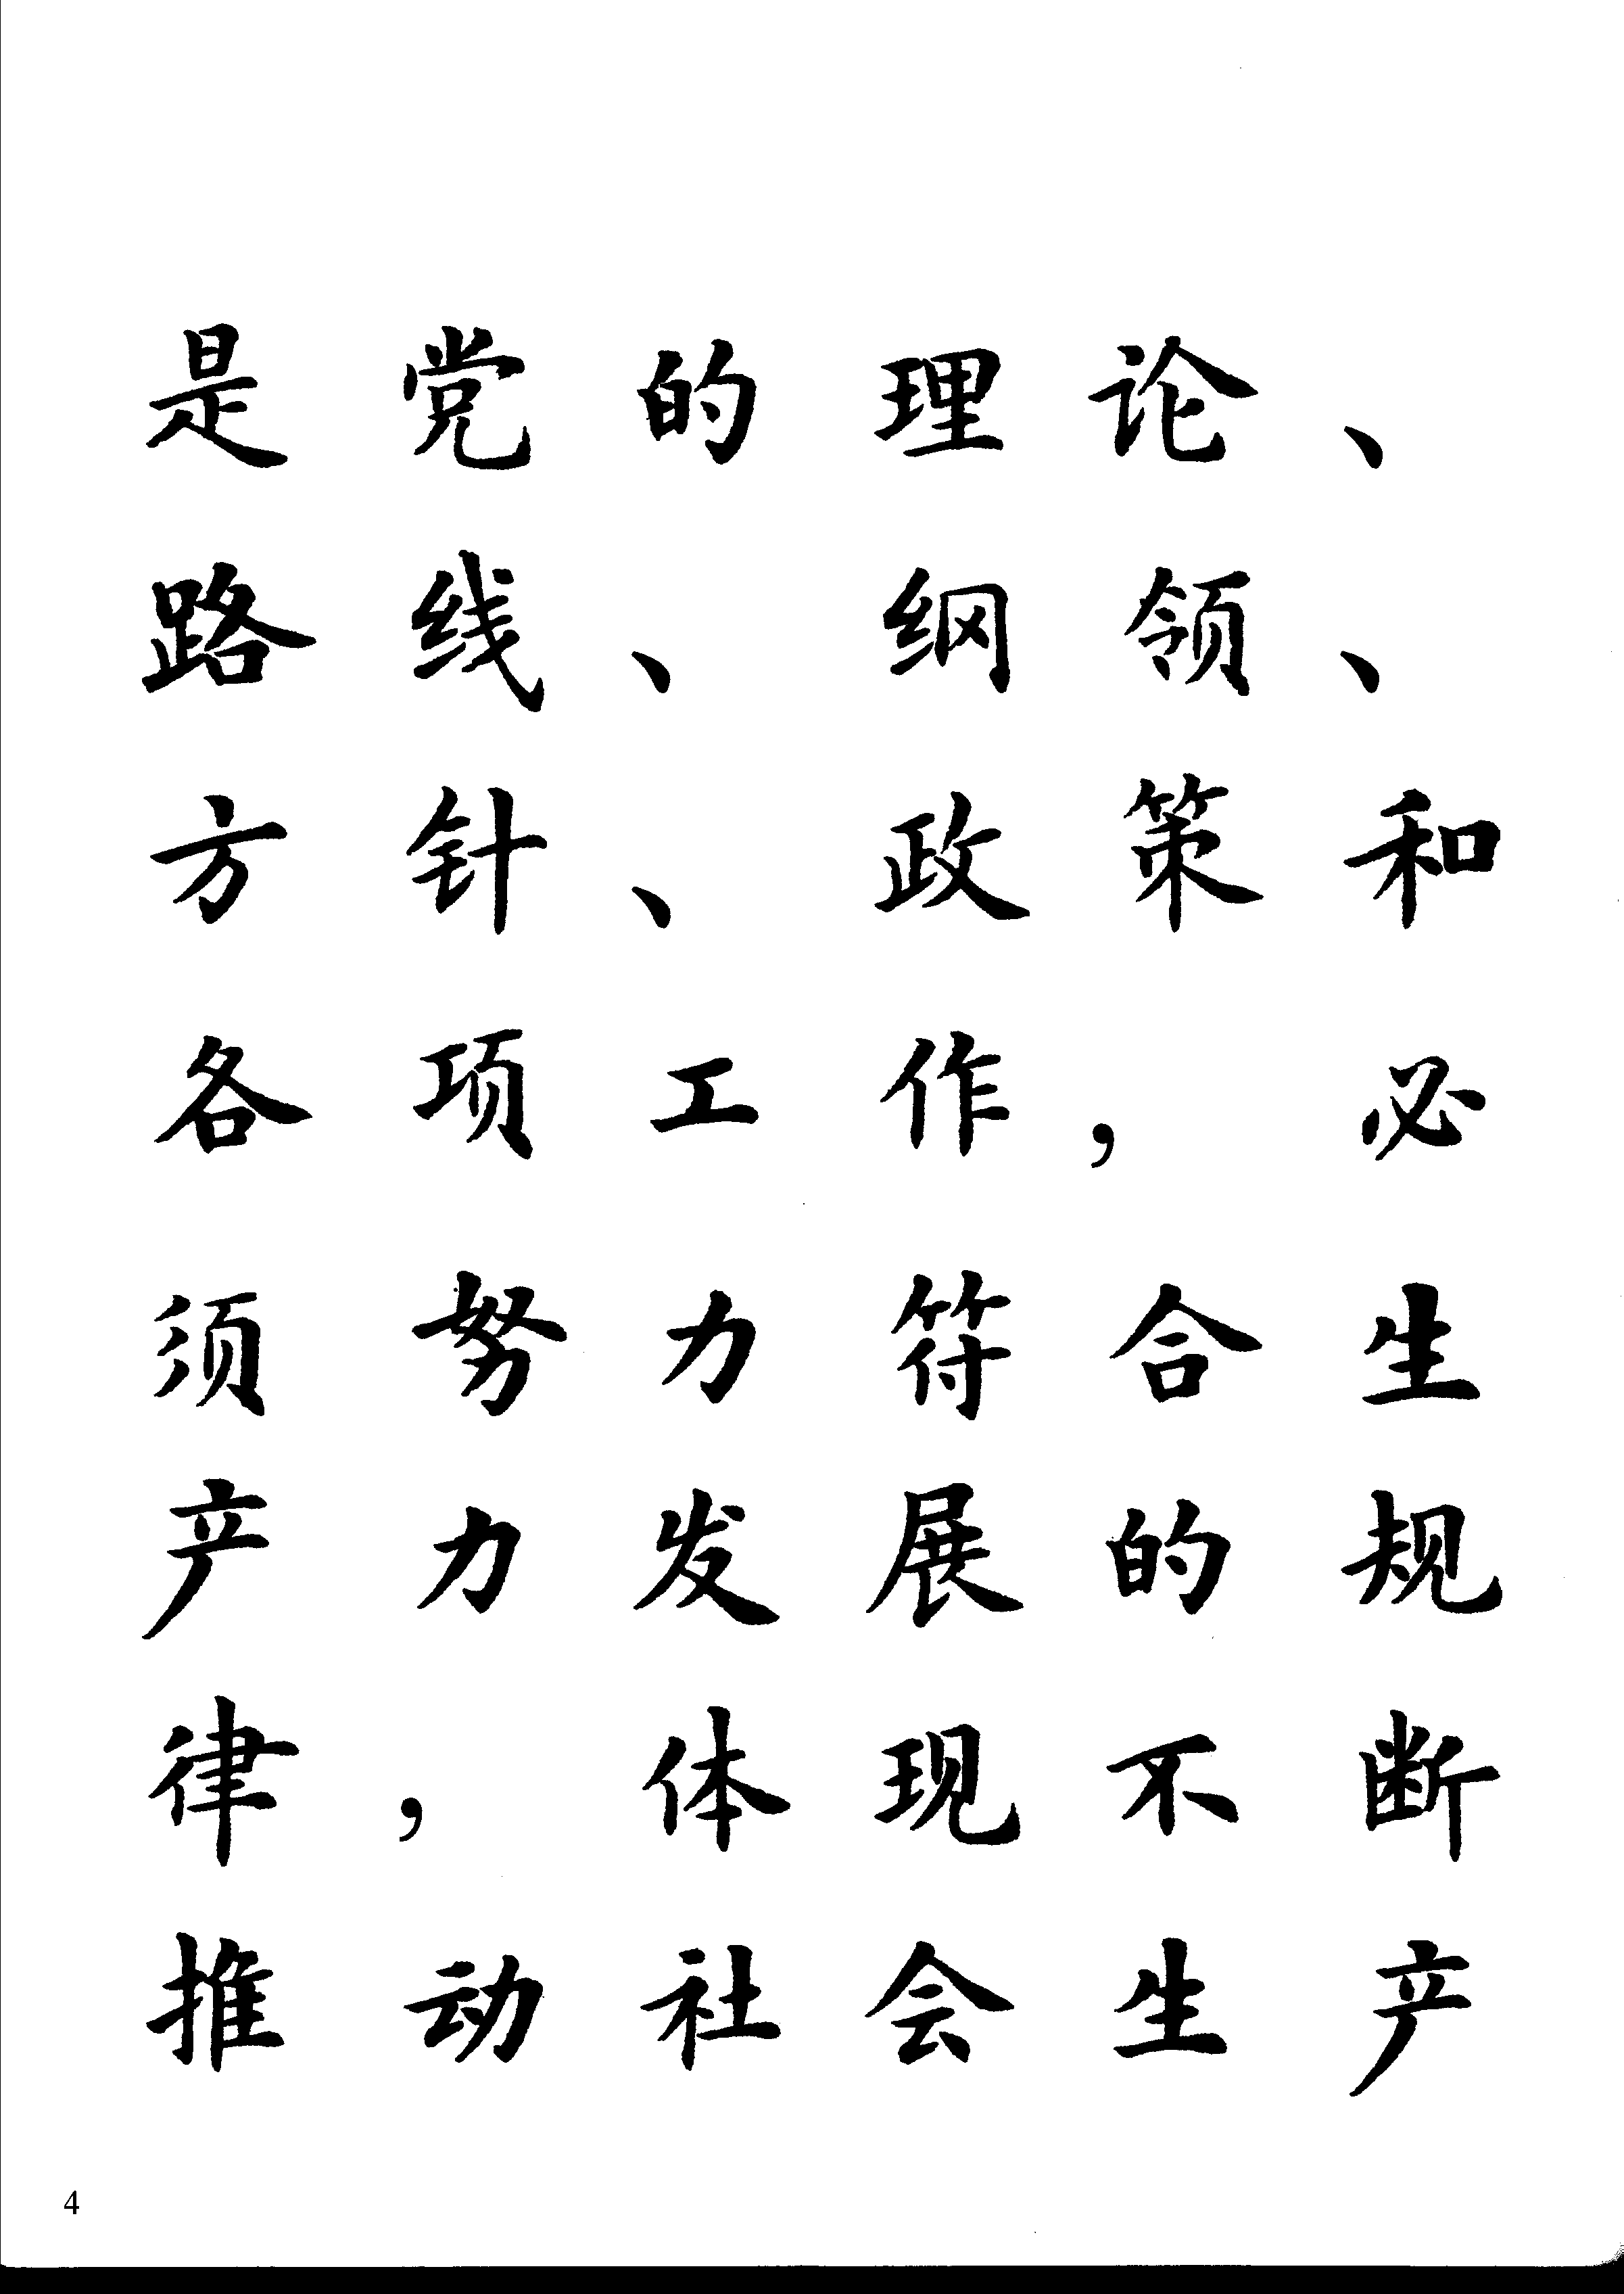 是党的理论、
路线、纲领、
方针、政策和
各项工作，必
须努力符合生
产力发展的规
律，体现不断
推动社会生产
4